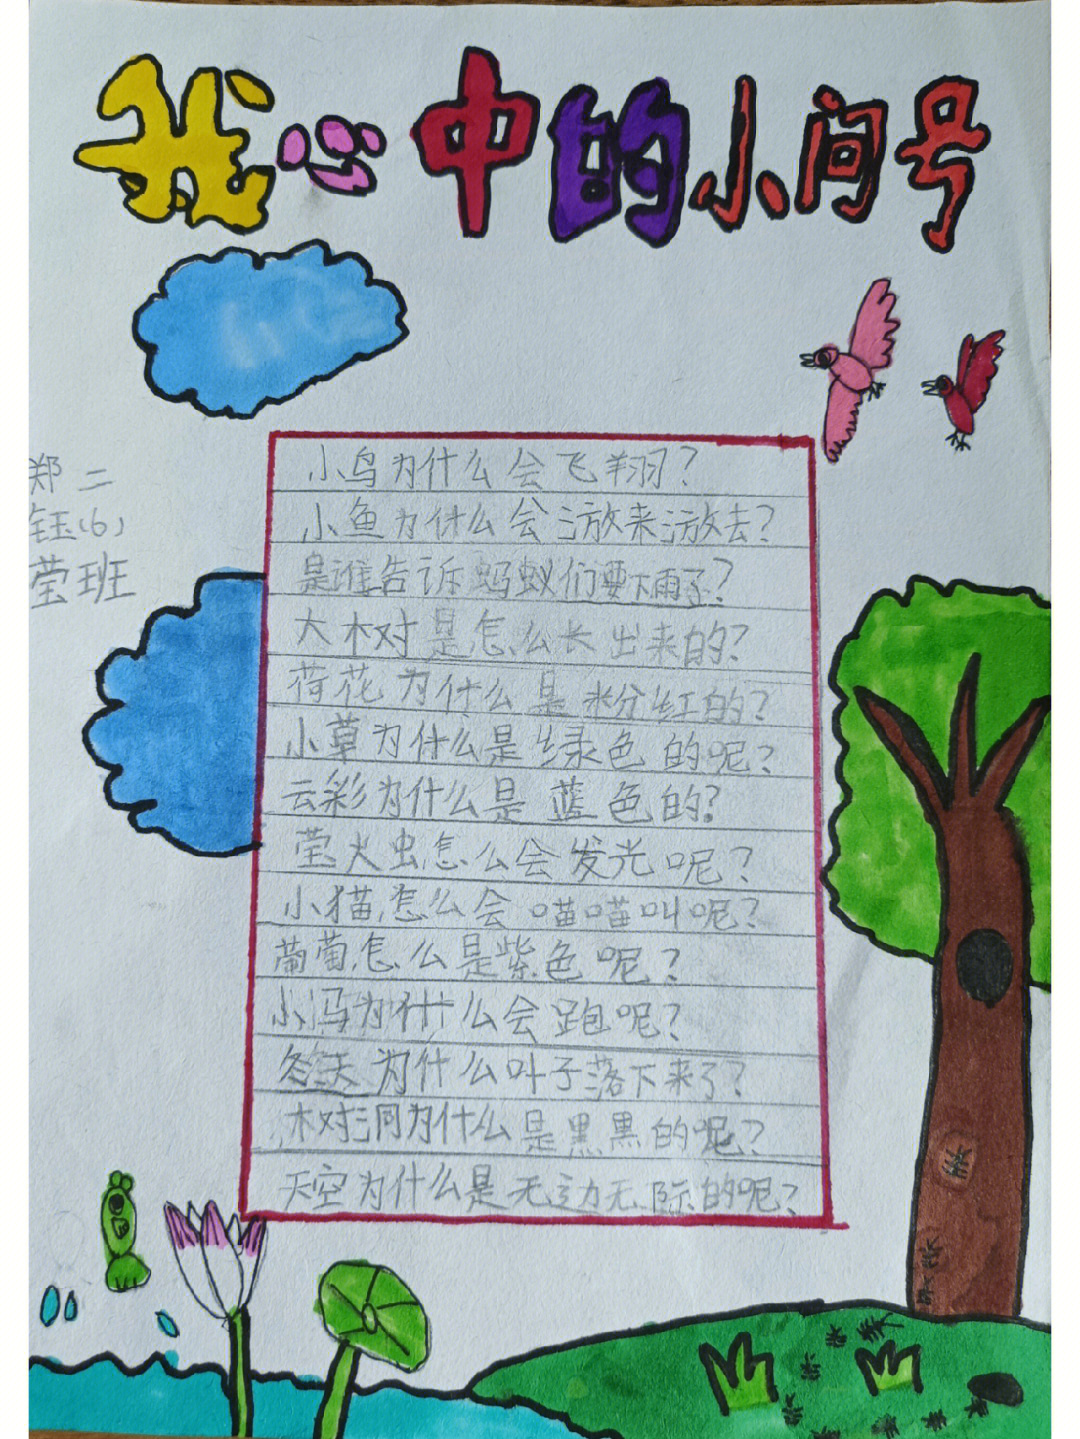 我心中的小问号
郑二
钰(6)
莹班
小鸟为什么会飞翔?
小鱼为什么会游来游去?
是谁告诉蚂蚁们要下雨了?
大树是怎么长出来的?
荷花为什么是粉红的?
小草为什么是绿色的呢?
云彩为什么是蓝色的?
萤火虫怎么会发光呢?
小猫怎么会喵喵叫呢?
葡萄怎么是紫色呢?
小冯为什么会跑呢?
冬天为什么叶子落下来了?
树洞为什么是黑黑的呢?
天空为什么是无边无际的呢?